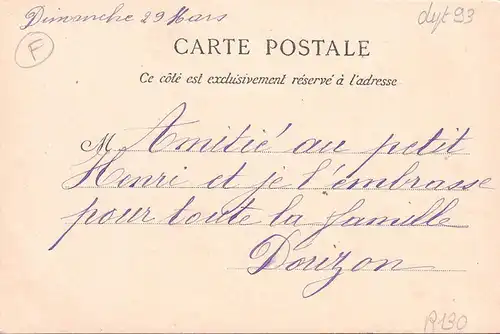 Dimanche 29 Mars
dept 93
F
CARTE POSTALE
Ce côté est exclusivement réservé à l'adresse
M Amitié au petit
Henri et je l'embrasse
pour toute la famille
Dorizon
R130